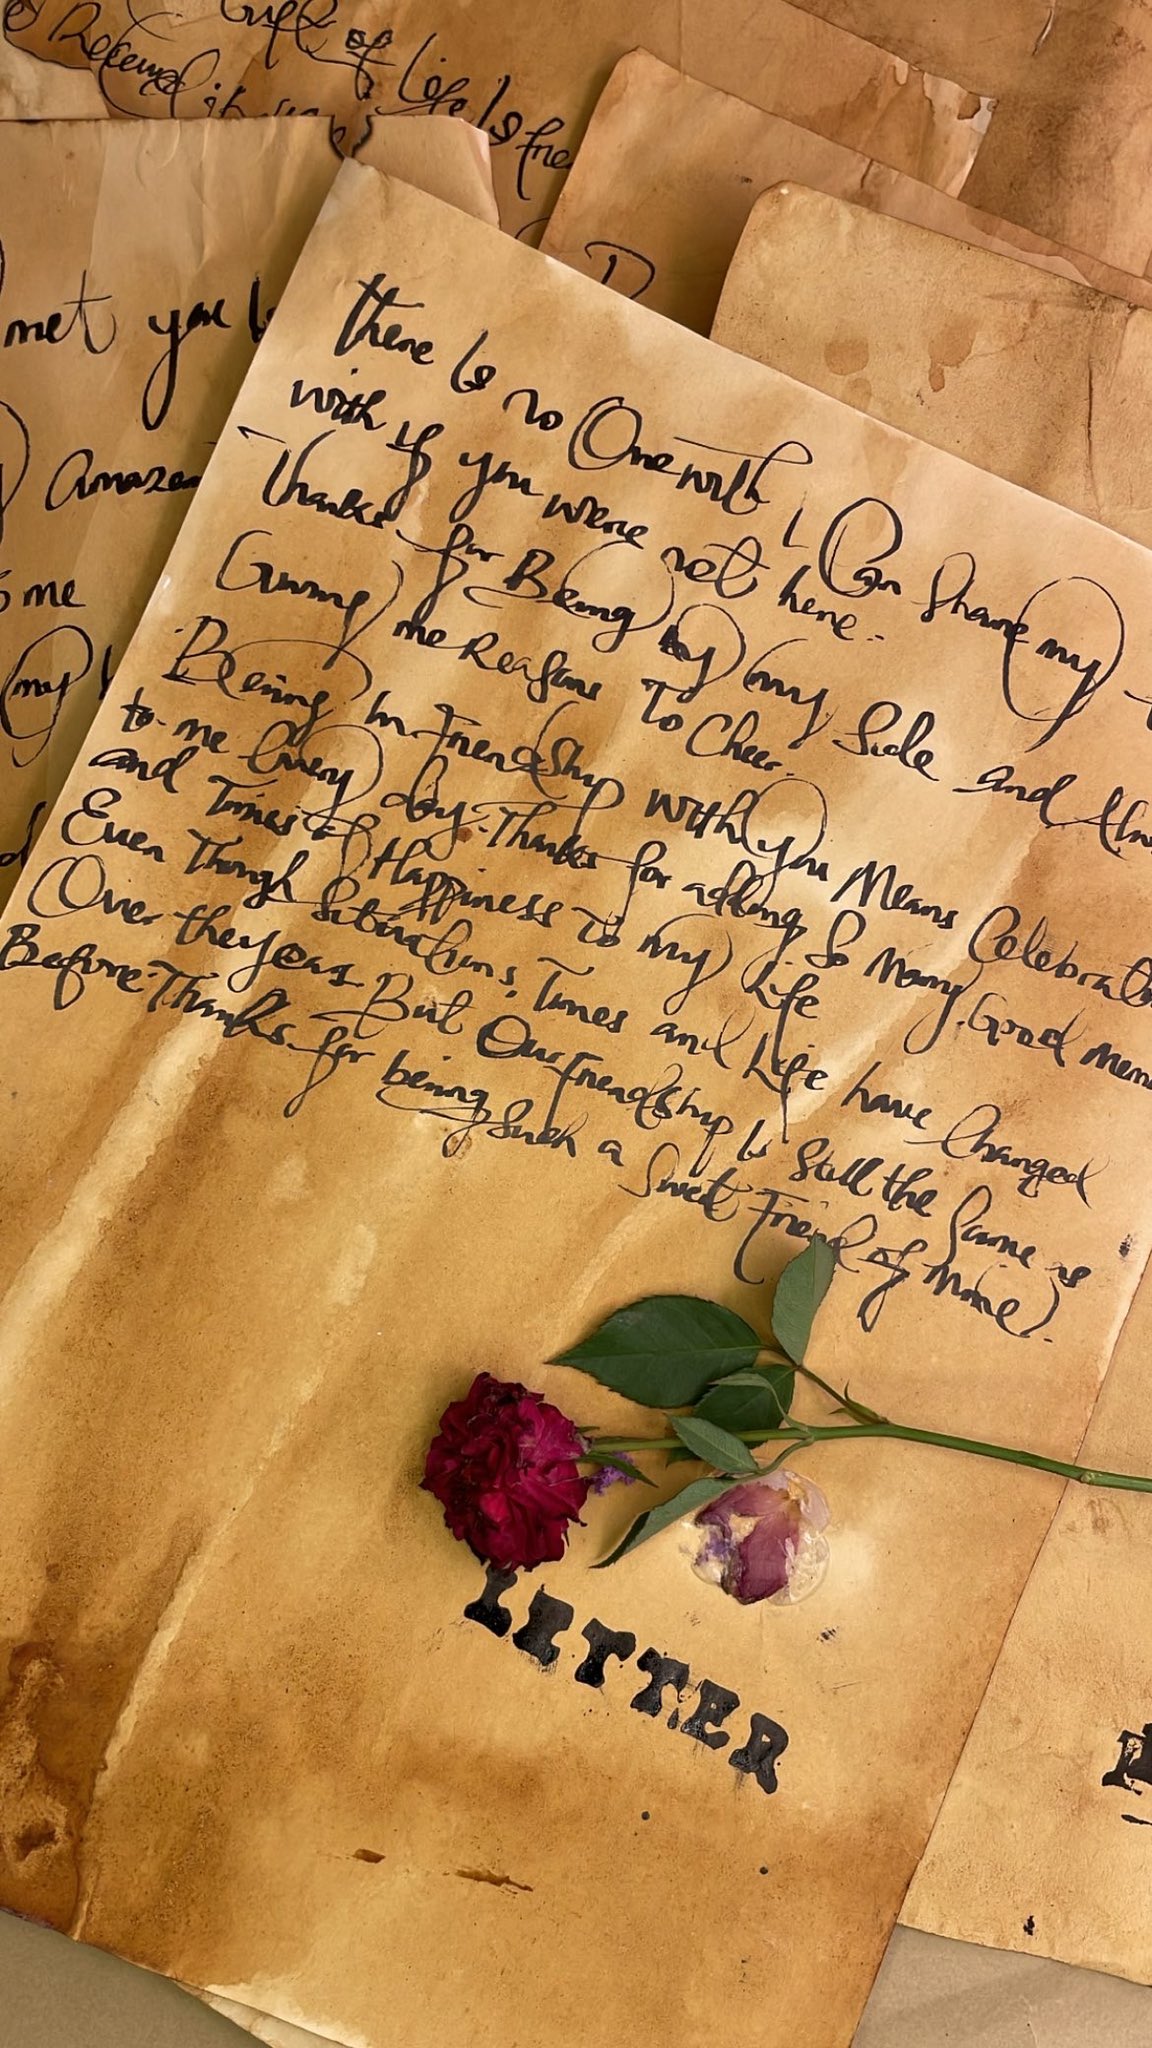 Gift of Life is
Received it
met you
Amazen
me
my
There is no One with I Can Share my
with if you were not here.
Thanks for Being by my Side and
Giving me Reasons To Cheer.
Being In Friendship with you Means
to me Every day. Thanks for adding So Many Good
and Times of Happiness To my Life
Even Though Situations, Times and Life have Changed
Over the years. But Our Friendship is Still the Same as
Before. Thanks for being Such a Sweet Friend of Mine.
LETTER